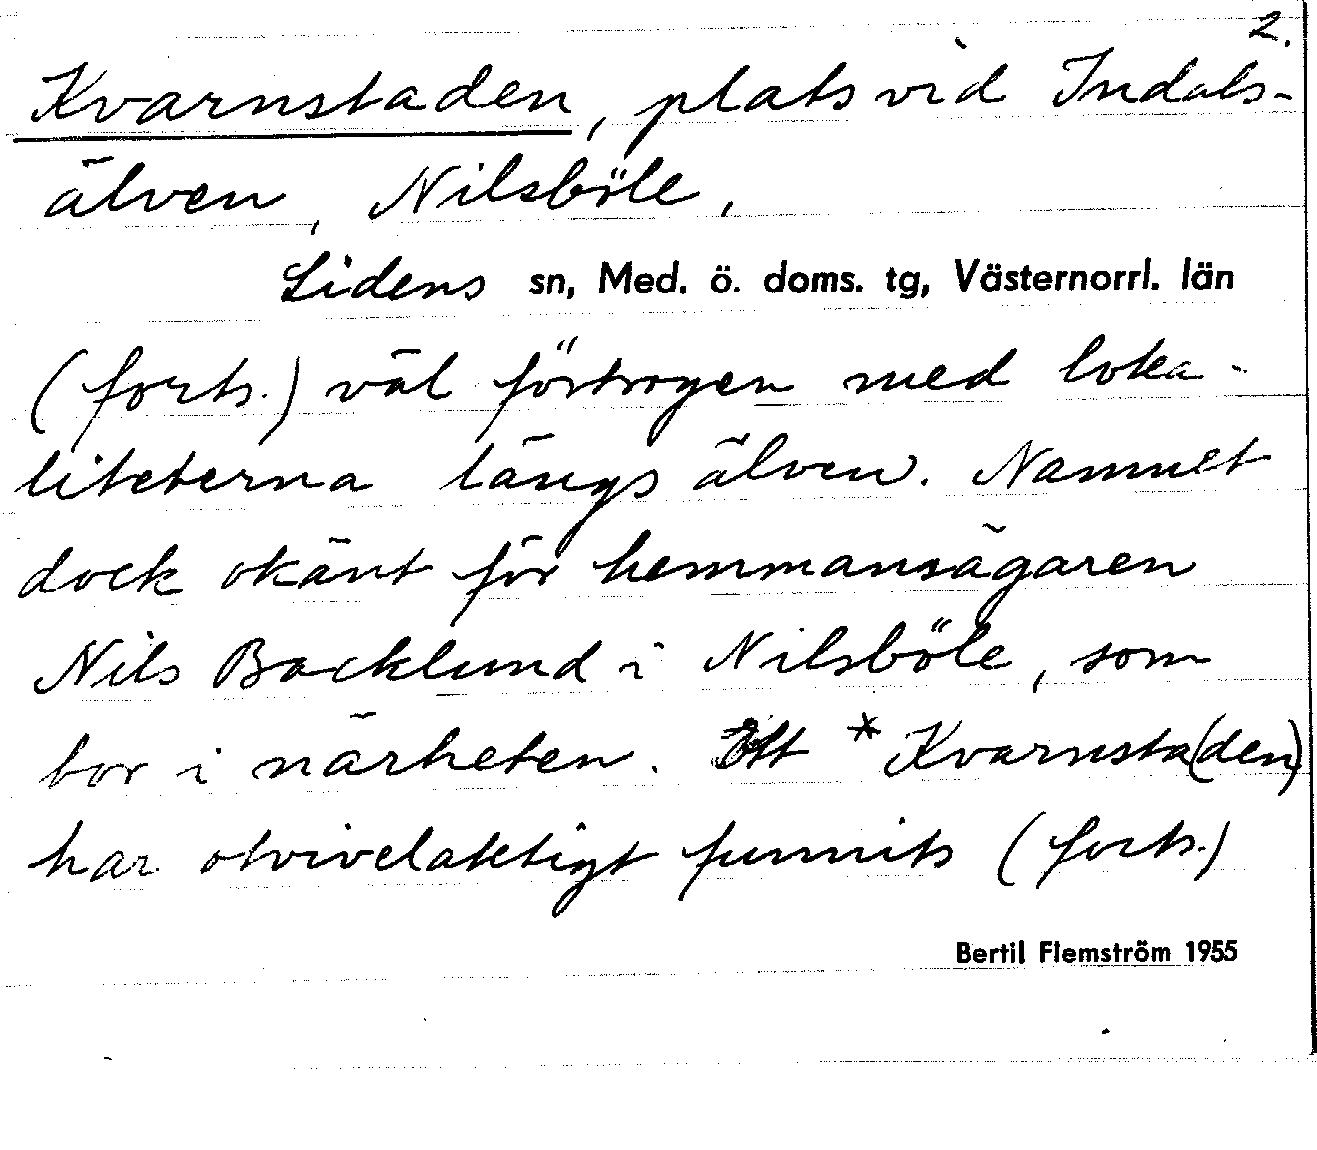 2.
Kvarnstaden, plats vid Indals-
älven, Nilsböle,
Lidens sn, Med. ö. doms. tg, Västernorrl. län
(forts.) väl förtrogen med loka-
liteterna längs älven. Namnet
dock okänt för hemmansägaren
Nils Backlund i Nilsböle, som
bor i närheten. Ett *Kvarnsta(den)
har otvivelaktigt funnits (forts.)
Bertil Flemström 1955